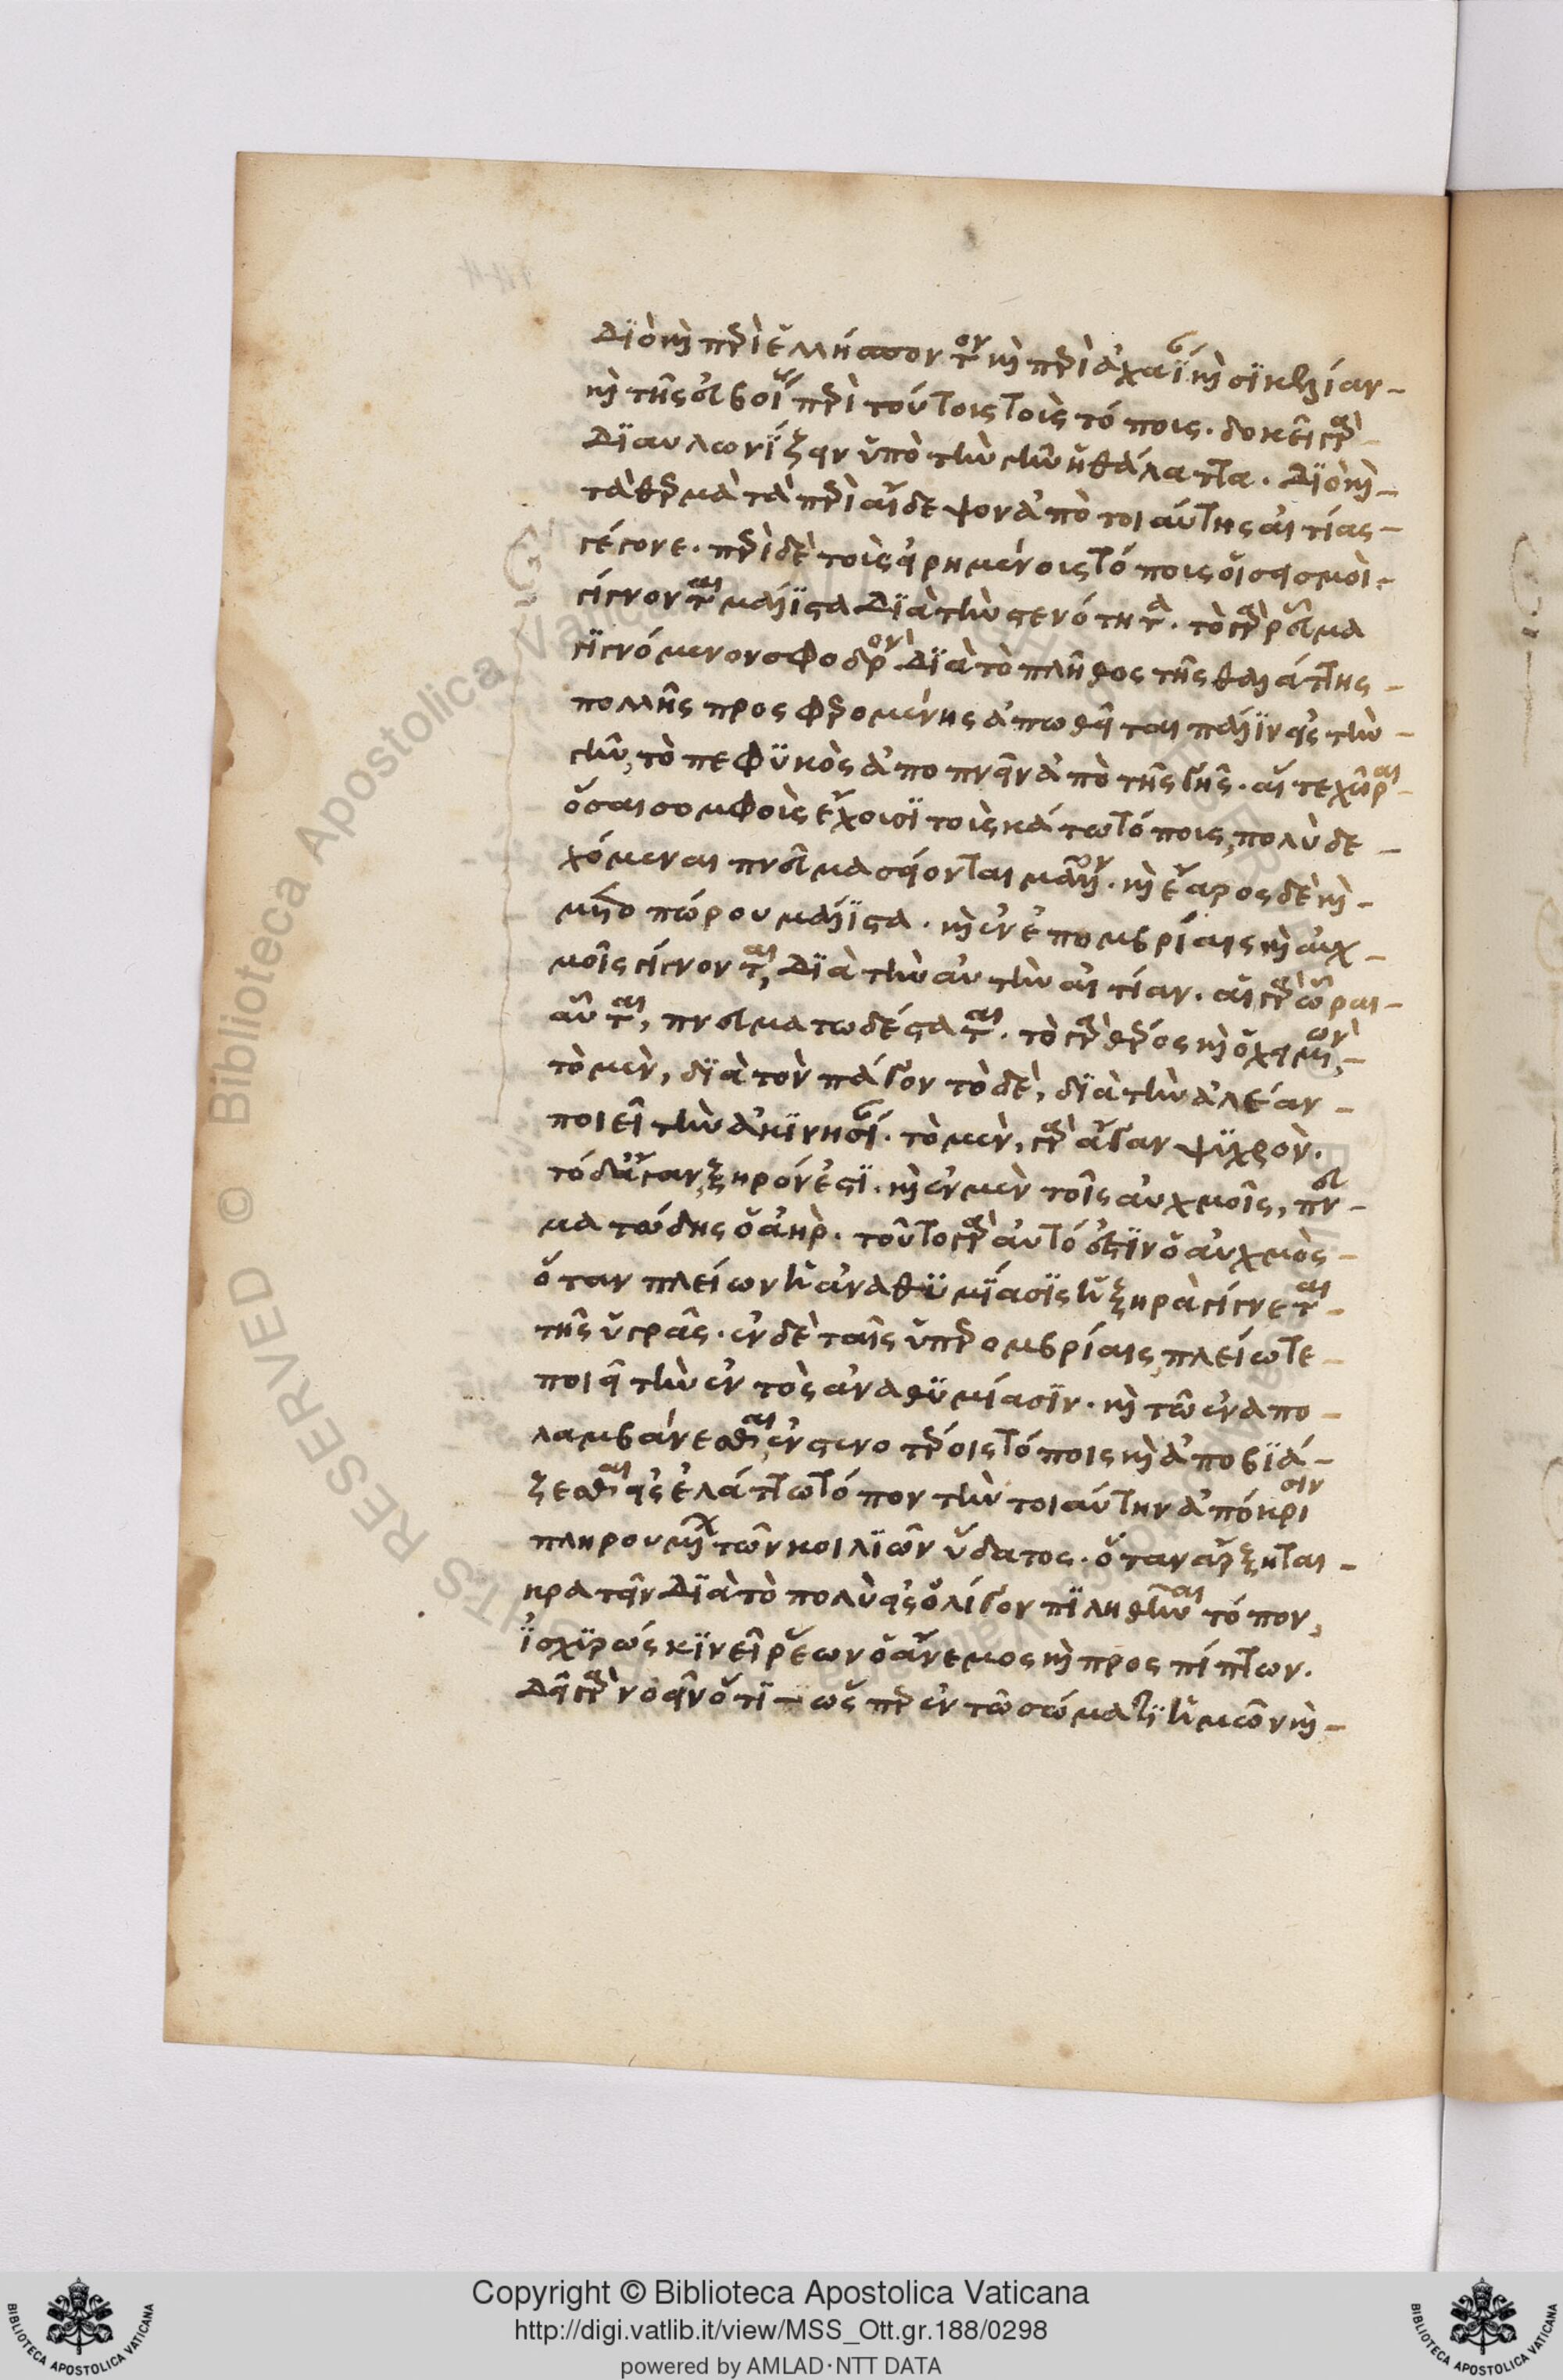 Διὸ κ περὶ ἑλλήσποντον κ περὶ ἀχαΐαν κ σικελίαν
κ τῆς εὐβοίας περὶ τούτοις τοῖς τόποις. δοκεῖ γὰρ
διαυλωνίζειν ὑπὸ τὴν γῆν ἡ θάλαττα. Διὸ κ
τὰ θερμὰ τὰ περὶ αἴδεψον ἀπὸ τοιαύτης αἰτίας
γέγονε. περὶ δὲ τοὺς εἰρημένους τόπους οἱ σεισμοὶ
γίγνονται μάλιστα διὰ τὴν στενότητα. τὸ γὰρ πνεῦμα
γιγνόμενον σφοδρὸν διὰ τὸ πλῆθος τῆς θαλάττης
πολλῆς προσφερομένης ἀπωθεῖται πάλιν εἰς τὴν
γῆν, τὸ πεφυκὸς ἀποπνεῖν ἀπὸ τῆς γῆς. αἵ τε χῶραι
ὅσαι σομφοὺς ἔχουσι τοὺς κάτω τόπους, πολὺ δε
χόμεναι πνεῦμα σείονται μᾶλλον. κ ἔαρος δὲ κ
μετοπώρου μάλιστα. κ ἐν ἐπομβρίαις κ αὐχ
μοῖς γίγνονται, διὰ τὴν αὐτὴν αἰτίαν. αἵ γὰρ ὧραι
αὗται, πνευματωδέσταται. τὸ γὰρ θέρος κ ὁ χειμὼν,
τὸ μὲν, διὰ τὸν πάγον τὸ δὲ, διὰ τὴν ἀλέαν
ποιεῖ τὴν ἀκινησίαν. τὸ μὲν, γὰρ ἄγαν ψυχρὸν.
τὸ δ' ἄγαν, ξηρόν ἐστι. κ ἐν μὲν τοῖς αὐχμοῖς, πνευ
ματώδης ὁ ἀήρ. τοῦτο γὰρ αὐτό ἐστιν ὁ αὐχμὸς
ὅταν πλείων ἡ ἀναθυμίασις ἡ ξηρὰ γίγνεται
τῆς ὑγρᾶς. ἐν δὲ ταῖς ὑπερομβρίαις, πλείω τε
ποιεῖ τὴν ἐντὸς ἀναθυμίασιν. κ τῷ ἐναπο
λαμβάνεσθαι, ἐν στενοτέροις τόποις κ ἀποβιά
ζεσθαι εἰς ἐλάττω τόπον τὴν τοιαύτην ἀπόκρισιν
πληρουμένων τῶν κοιλιῶν ὕδατος. ὅταν ἄρξηται
κρατεῖν διὰ τὸ πολὺ εἰς ὀλίγον πιληθῆναι τόπον,
ἰσχυρῶς κινεῖ ῥέων ὁ ἄνεμος κ προσπίπτων.
Δεῖ γὰρ νοεῖν ὅτι ὥσπερ ἐν τῷ σώματι ἡμῶν κ
Copyright © Biblioteca Apostolica Vaticana
http://digi.vatlib.it/view/MSS_Ott.gr.188/0298
powered by AMLAD·NTT DATA